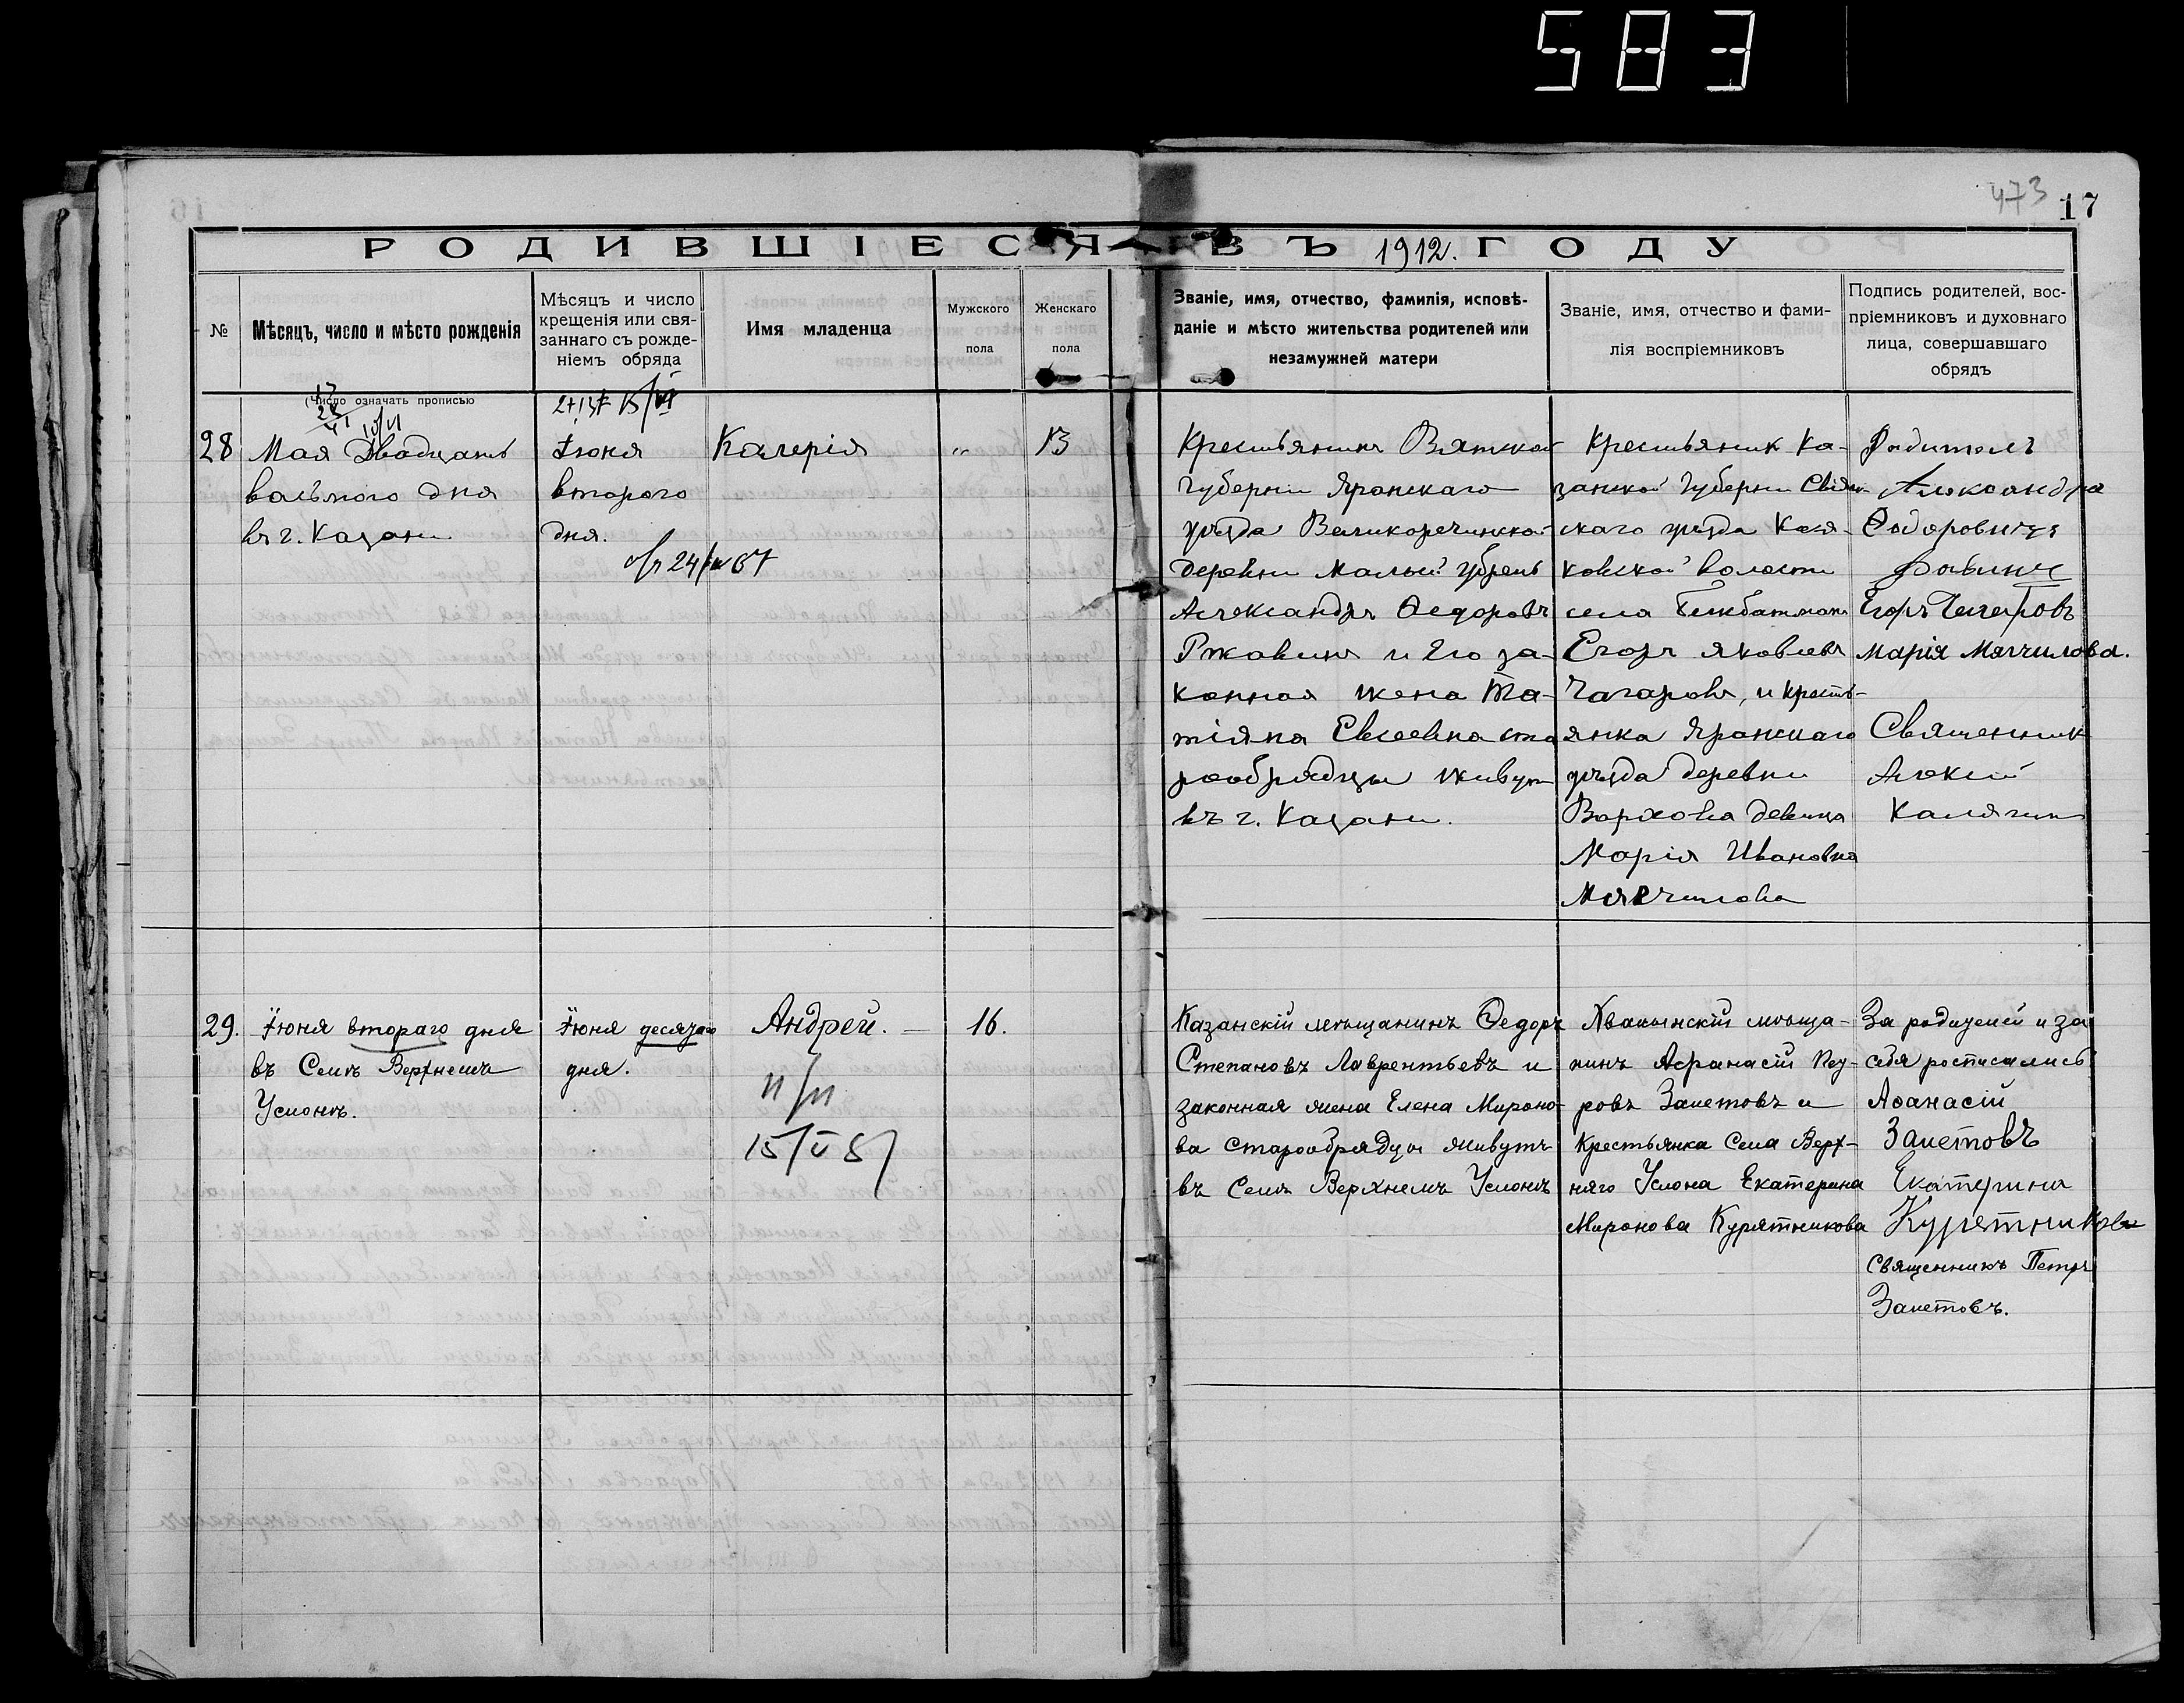 583
473
17
РОДИВШІЕСЯ ВЪ 1912. ГОДУ
№
Мѣсяцъ, число и мѣсто рожденія
Мѣсяцъ и число
крещенія или свя-
заннаго съ рожде-
ніемъ обряда
Имя младенца
Мужского
пола
Женскаго
пола
Званіе, имя, отчество, фамилія, исповѣ-
даніе и мѣсто жительства родителей или
незамужней матери
Званіе, имя, отчество и фами-
лія воспріемниковъ
Подпись родителей, вос-
пріемниковъ и духовнаго
лица, совершавшаго
обрядъ
(Число означать прописью
28
Мая Двадцать
восьмого дня
въ г. Казани
Іюня
второго
дня.
Калерія
„
13
Крестьянинъ Вятской
губерніи Яранскаго
уѣзда Великоречинской
деревни Малый
Александръ Ѳедоровъ
Ржавинъ и Его за-
конная жена Та-
тіяна Евсеевна ста
рообрядцы живутъ
въ г. Казани.
Крестьянин Ка-
занской губерни
скаго уѣзда
ковской волости
села
Егоръ Яковлевъ
Чагаровъ, и кресть-
янка Яранскаго
уѣзда деревни
девица
Марія Ивановна
Мягчилова
Родитель
Александръ
Егоръ
Марія Мягчилова.
Священник
Алексій
Калягин
29.
Іюня второго дня
въ Селѣ Верхнемъ
Услонѣ.
Іюня десятаго
дня.
Андрей. —
16.
Казанскій мѣщанинъ Ѳедоръ
Степановъ Лаврентьевъ и
законная жена Елена Мироно-
ва старообрядцы живутъ
въ Селѣ Верхнемъ Услонѣ
Хвалынскій мѣща-
нинъ Афанасій
ровъ Залетовъ и
Крестьянка Села Верх-
няго Услона Екатерина
Миронова Курятникова
За родителей и за
себя росписались
Аѳанасій
Залетовъ
Екатерина
Курятникова
Священникъ Петръ
Залетовъ.